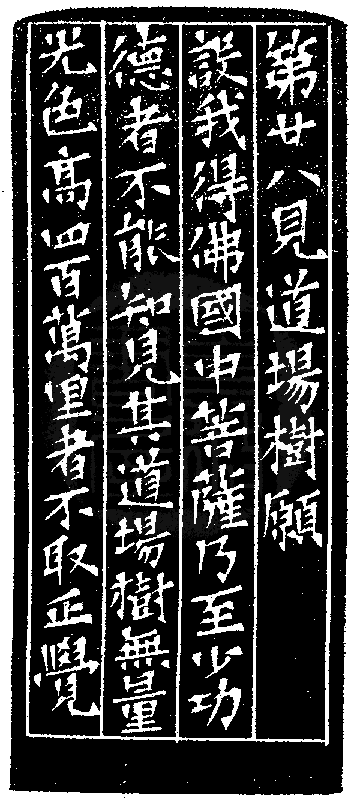 第廿八見道場樹願
設我得佛國中菩薩乃至少功
德者不能知見其道場樹無量
光色高四百萬里者不取正覺